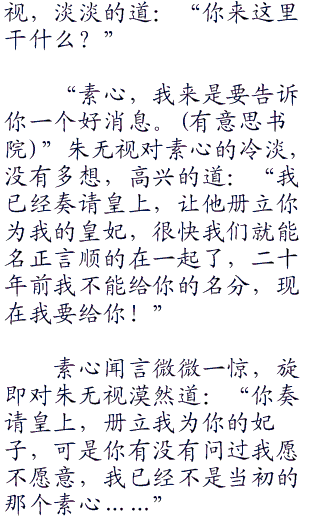 视，淡淡的道：“你来这里
干什么？”
“素心，我来是要告诉
你一个好消息。(有意思书
院)”朱无视对素心的冷淡，
没有多想，高兴的道：“我
已经奏请皇上，让他册立你
为我的皇妃，很快我们就能
名正言顺的在一起了，二十
年前我不能给你的名分，现
在我要给你！”
素心闻言微微一惊，旋
即对朱无视漠然道：“你奏
请皇上，册立我为你的妃
子，可是你有没有问过我愿
不愿意，我已经不是当初的
那个素心……”